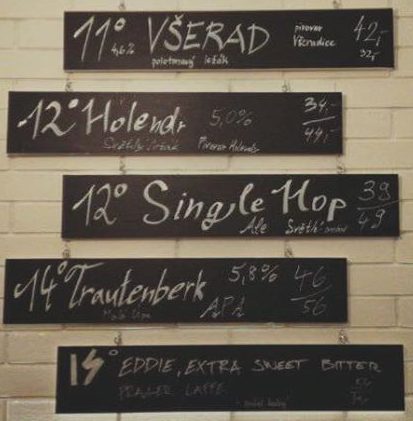 11° VŠERAD pivovar 42,-
4,6% Všeradice 32,-
polotmavý ležák
12° Holendr 5,0% 34,-
Světlý ležák Pivovar Holendr 44,-
12° Single Hop 39
Ale Světlé 49
14° Trautenberk 5,8% 46
Malá Úpa APA 56
15° EDDIE, EXTRA SWEET BITTER
PRAGER LAFFE